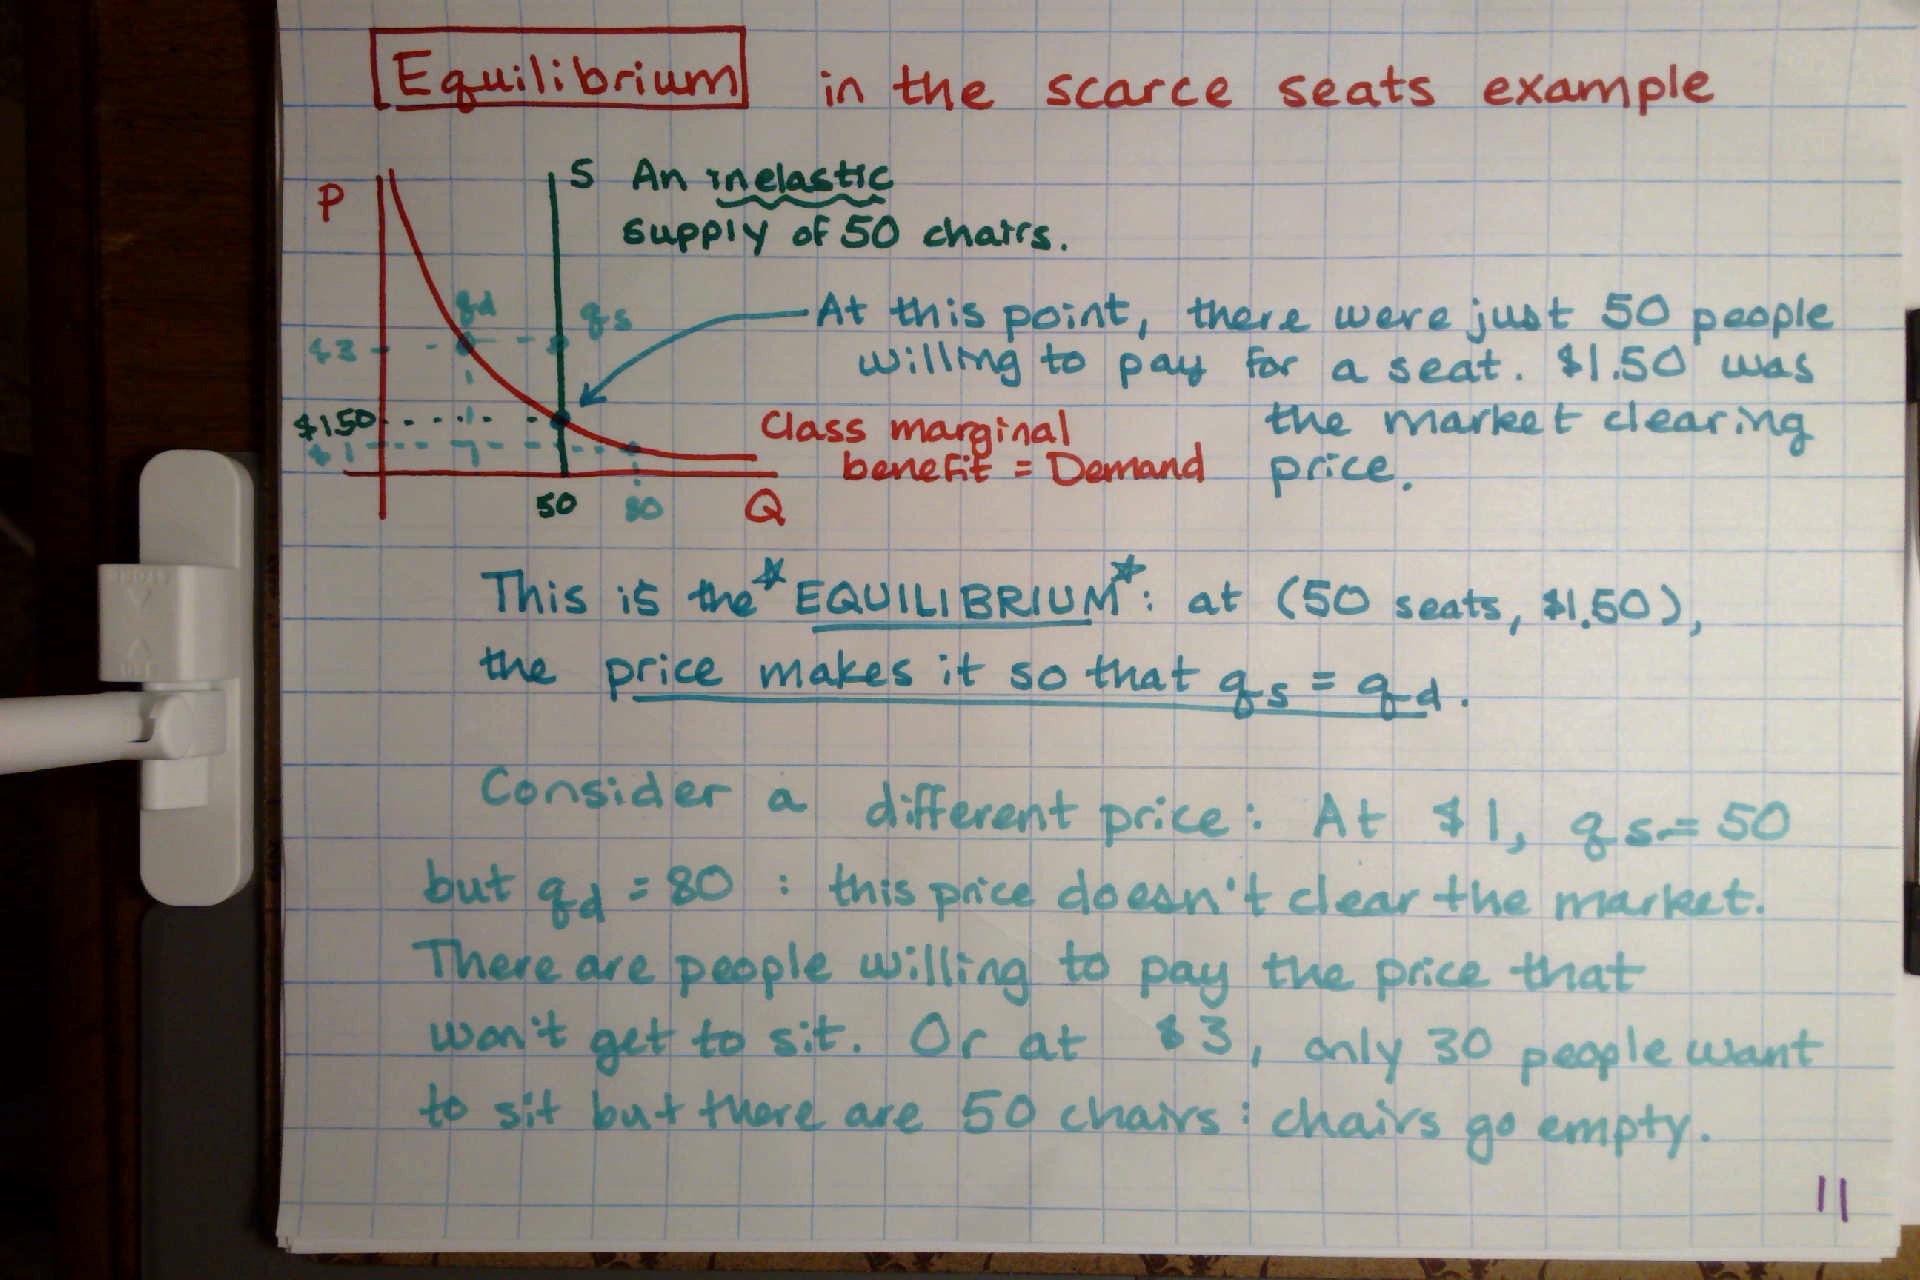 Equilibrium in the scarce seats example
P
S An inelastic
supply of 50 chairs.
qd
qs
$3
At this point, there were just 50 people
willing to pay for a seat. $1.50 was
the market clearing
price.
$1.50
$1
Class marginal
benefit = Demand
50
80
Q
This is the *EQUILIBRIUM*: at (50 seats, $1.50),
the price makes it so that qs = qd.
Consider a different price: At $1, qs = 50
but qd = 80 : this price doesn't clear the market.
There are people willing to pay the price that
won't get to sit. Or at $3, only 30 people want
to sit but there are 50 chairs : chairs go empty.
11